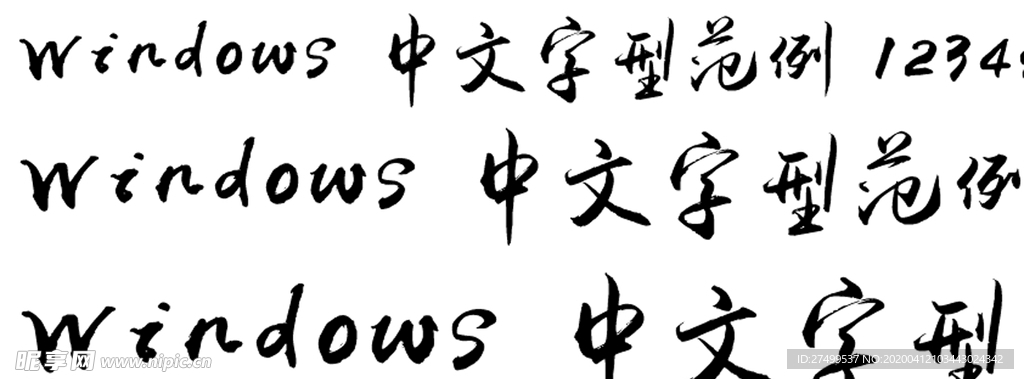 Windows 中文字型范例 1234
Windows 中文字型范例
Windows 中文字型
昵享网 www.nipic.cn
ID:27499537 NO:20200412103443024342